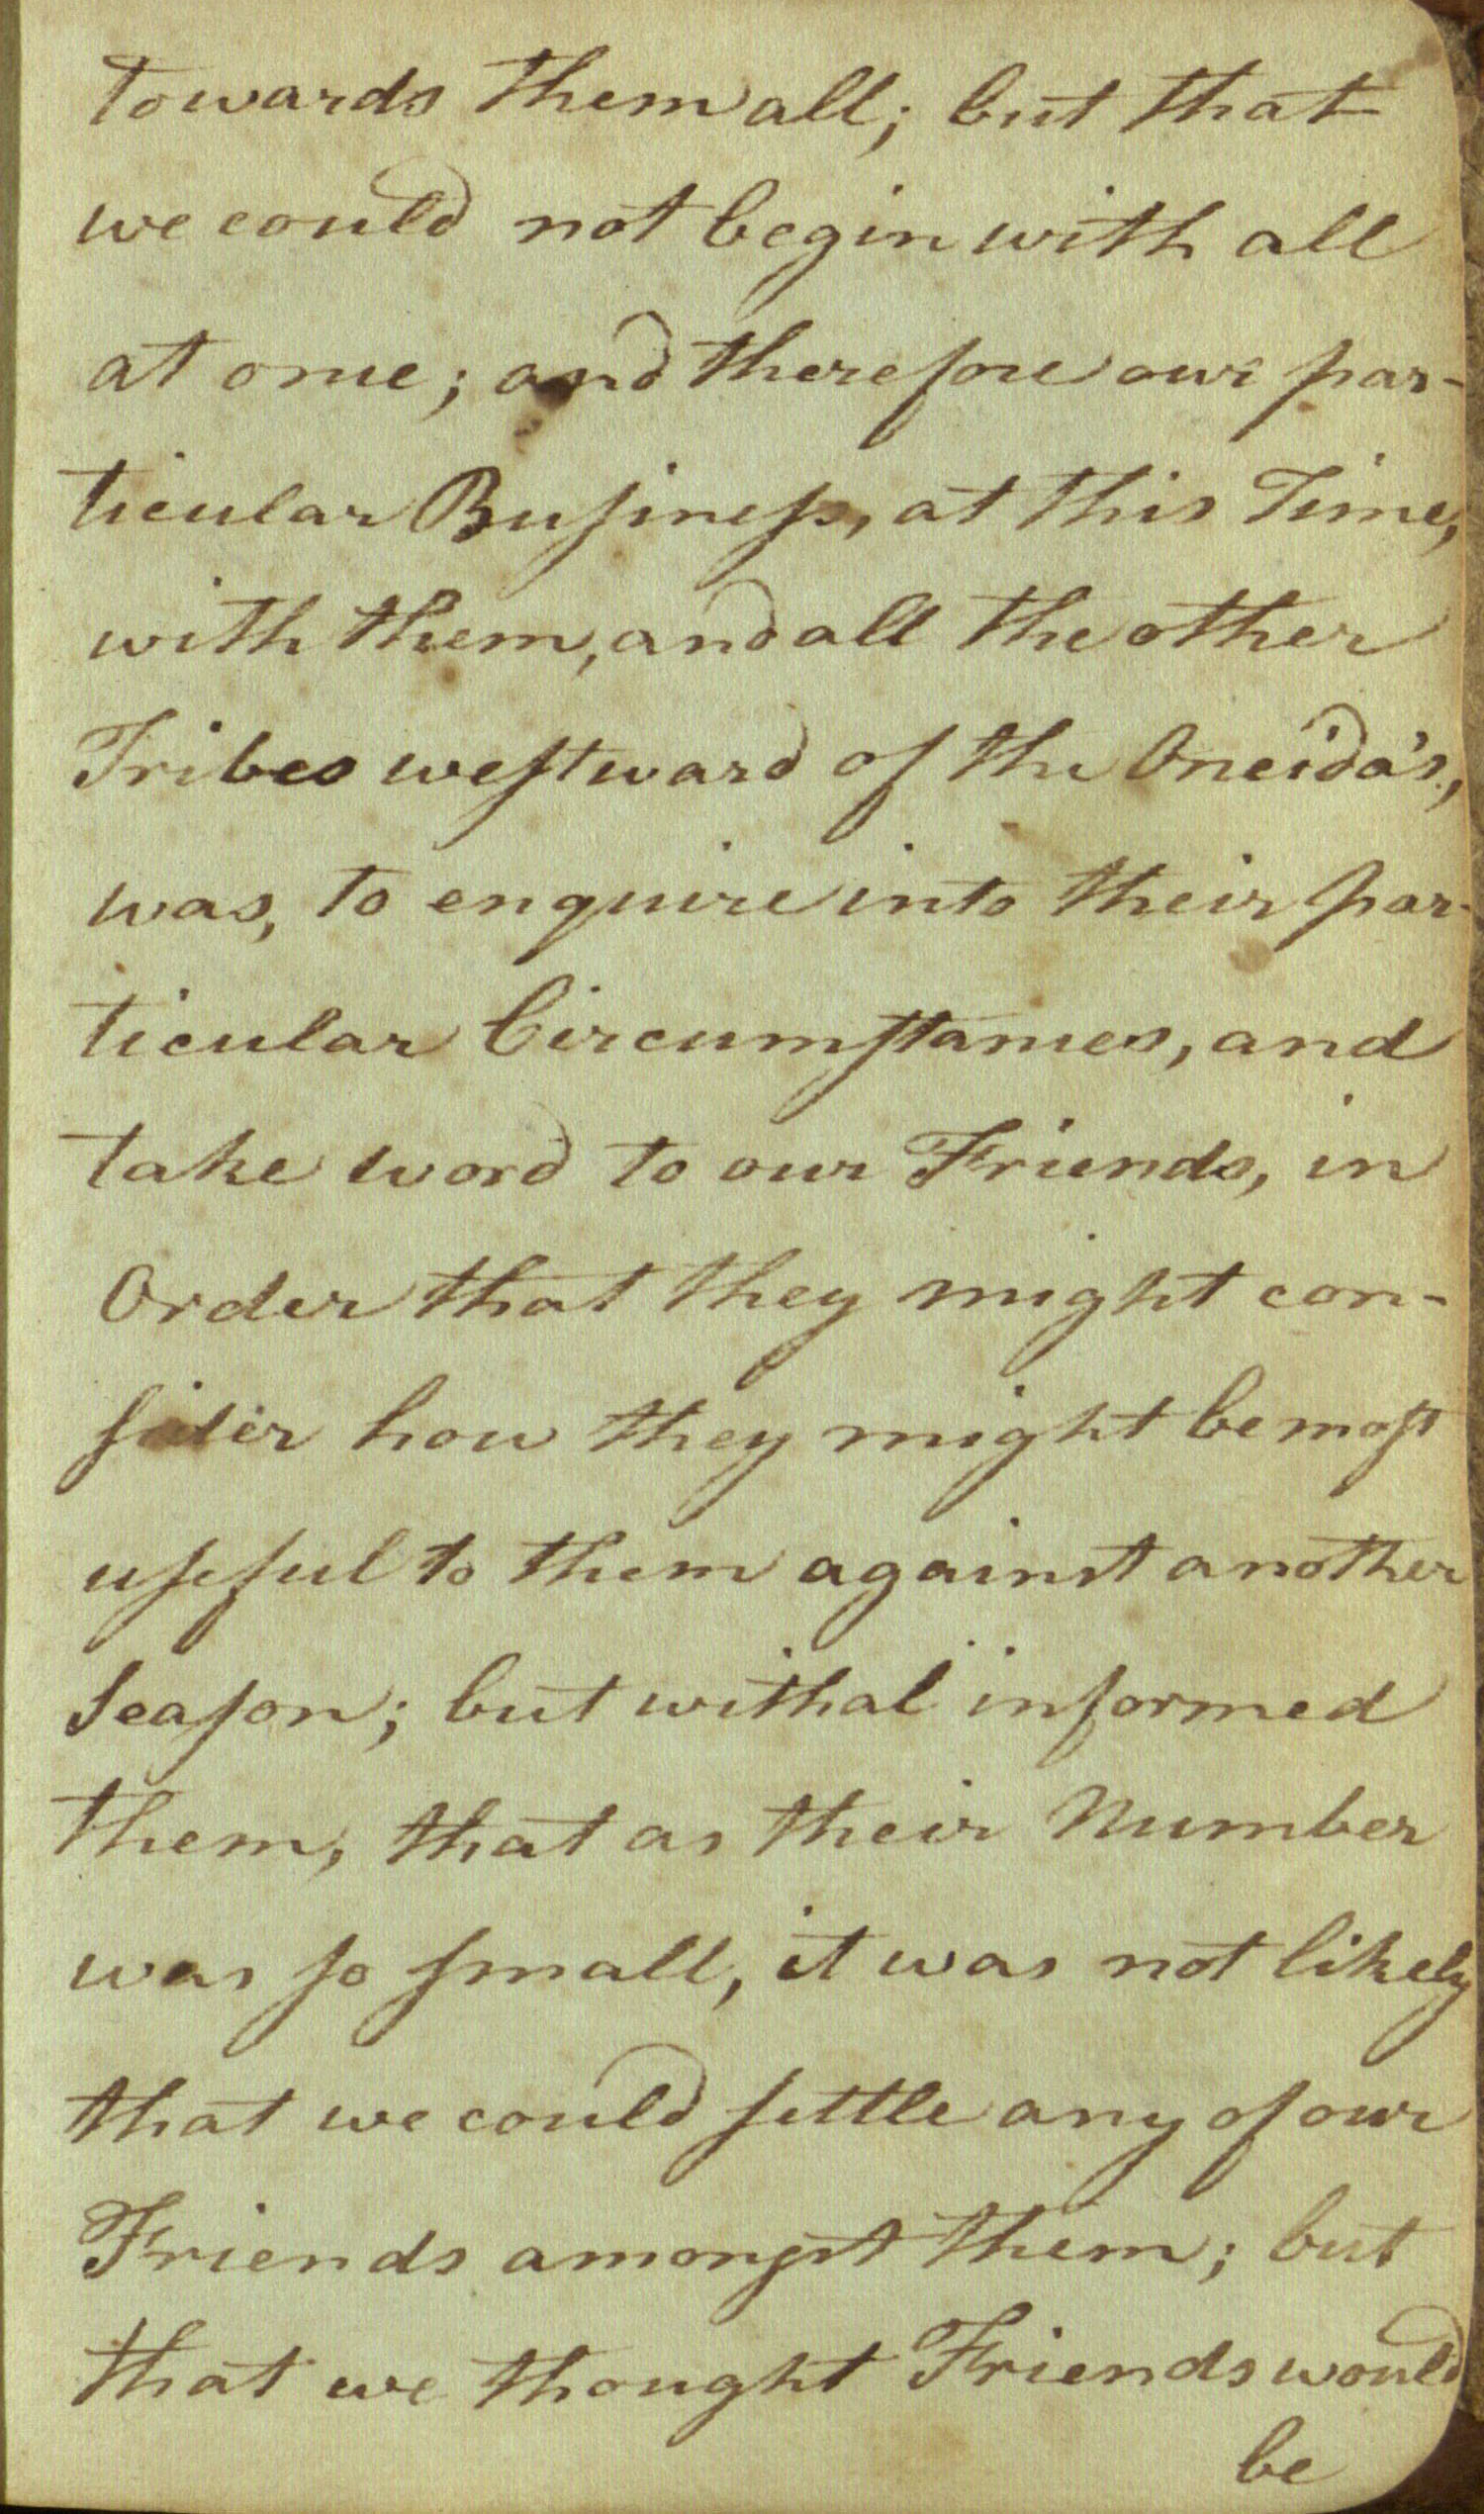 towards them all; but that
we could not begin with all
at once; and therefore our par-
ticular Buſineſs, at this Time,
with them, and all the other
Tribes weſtward of the Oneida's,
was, to enquire into their par-
ticular Circumſtances, and
take word to our Friends, in
Order that they might con-
ſider how they might be moſt
uſeful to them against another
Seaſon; but withal informed
them, that as their Number
was ſo ſmall, it was not likely
that we could ſettle any of our
Friends amongst them; but
that we thought Friends would
be